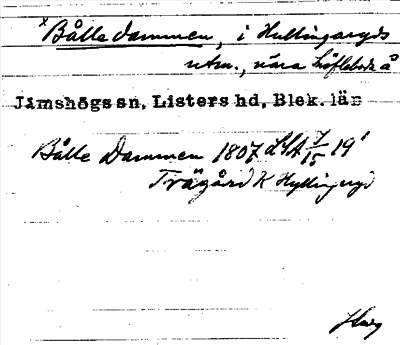 x Bålle dammen, i Hullingaryds
utm., nära Löfleboda å
Jämshögs sn, Listers hd, Blek. län
Bålle Dammen 1807 LSA 7/15 19¹
Trägård K Hyllingeryd